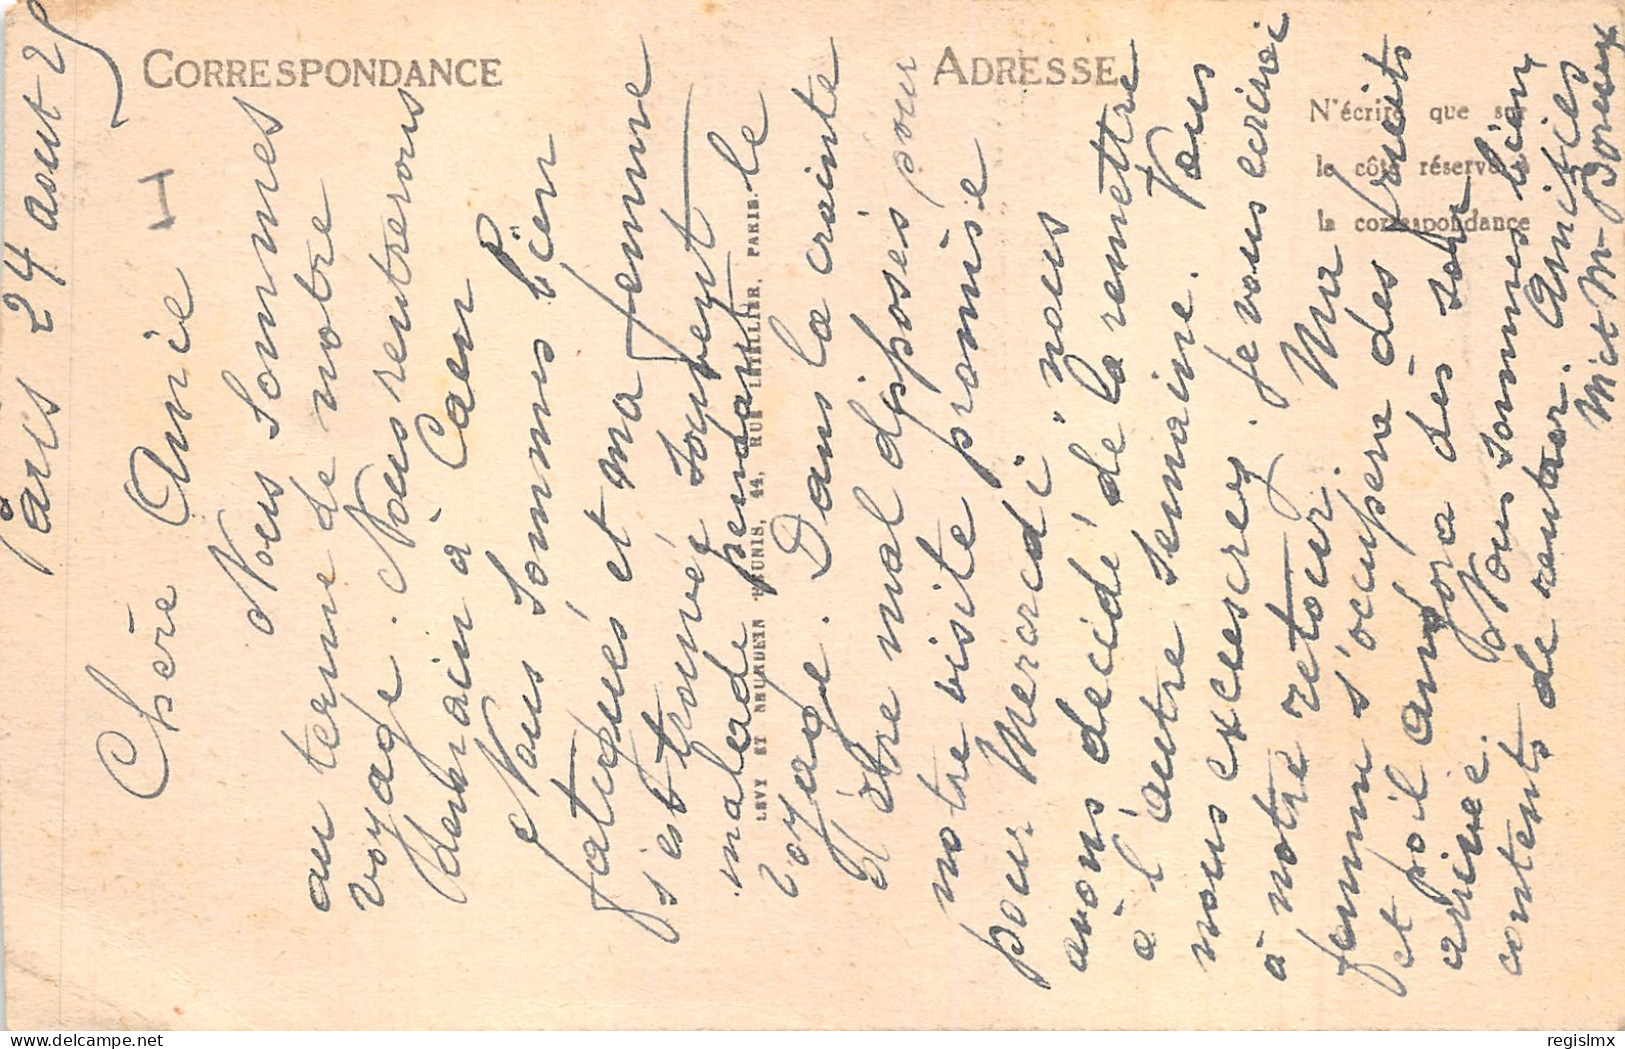 CORRESPONDANCE
ADRESSE
N'écrire que sur
le côté réservé à
la correspondance
LEVY ET NEURDEIN RÉUNIS, 44, RUE LETELLIER, PARIS
Paris 24 aout 25
Chère Amie
Nous sommes
au terme de notre
voyage. Nous rentrerons
demain à Caen
Nous sommes bien
fatigués et ma femme
s'est trouvée souvent
malade pendant le
voyage. Dans la crainte
d'être mal disposés pour
notre visite promise
pour Mercredi nous
avons décidé de la remettre
à l'autre semaine. Vous
nous excuserez je vous écrirai
à notre retour. Ma
femme s'occupera des fruits
et il aura dès son
arrivée. Nous sommes bien
contents de rentrer. Amitiés
M et Mme